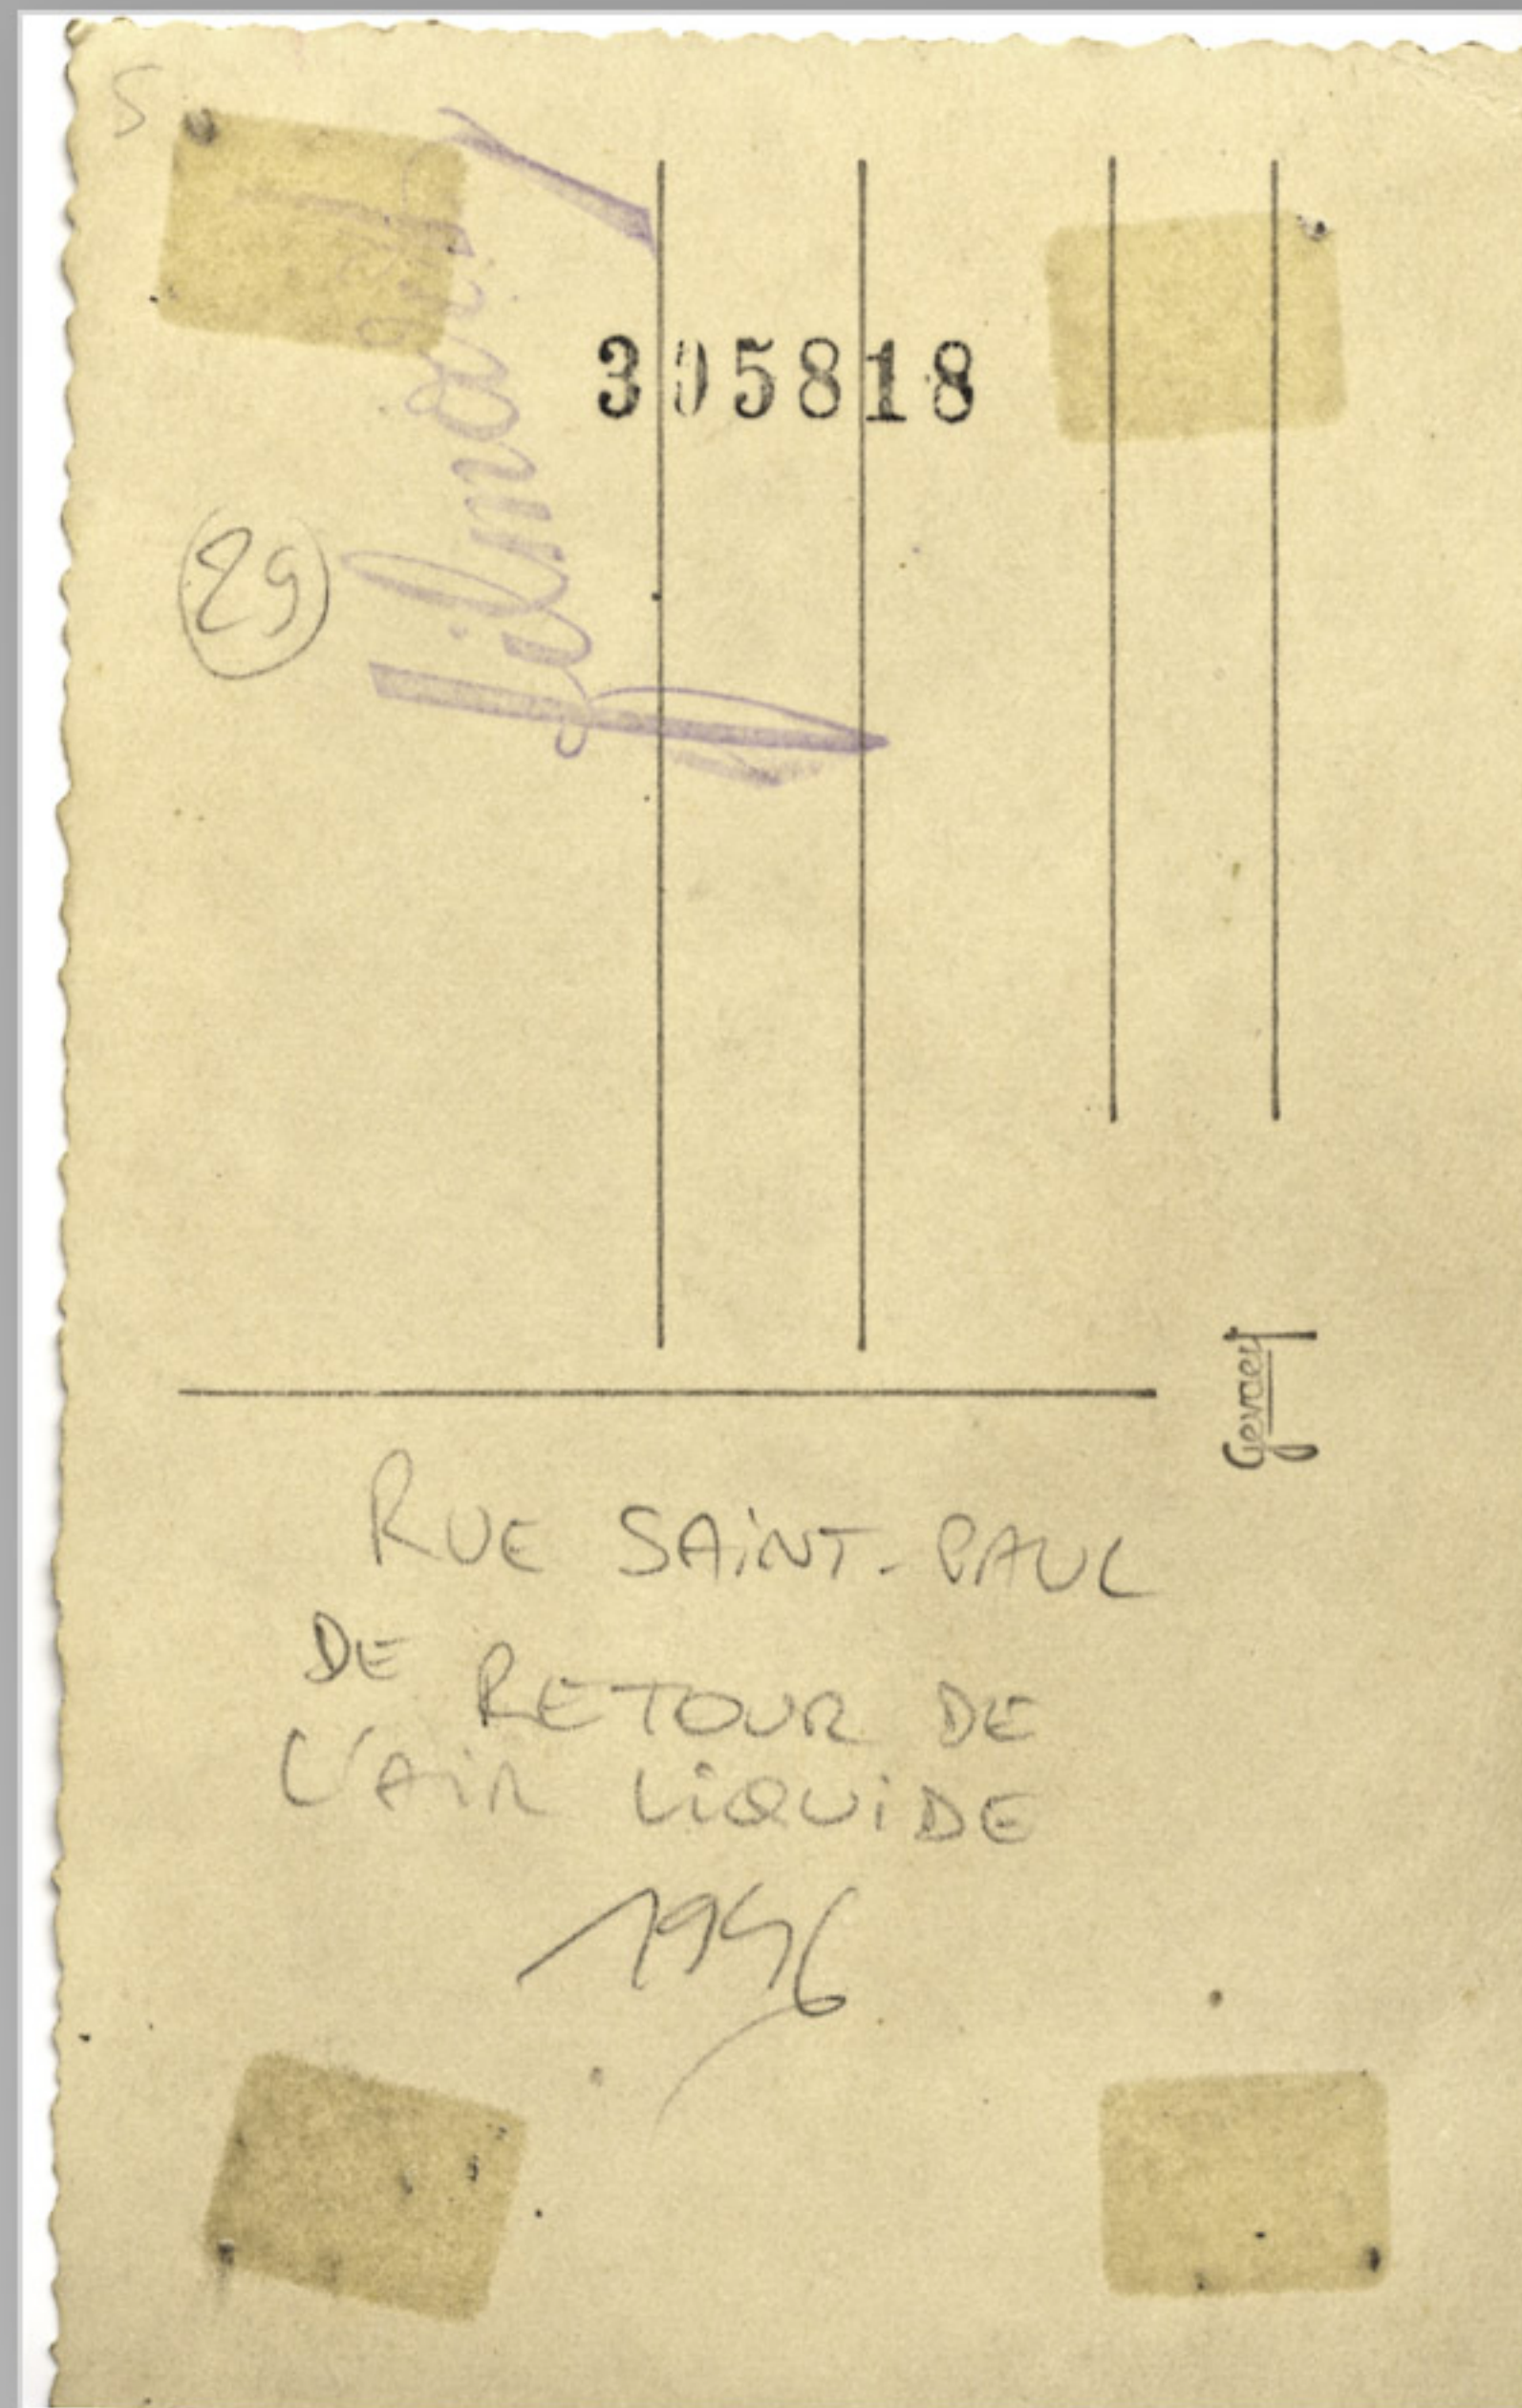 S
filmart
29
Gevaert
RUE SAiNT-PAUL
DE RETOUR DE
L'AiR LiQUiDE
1946